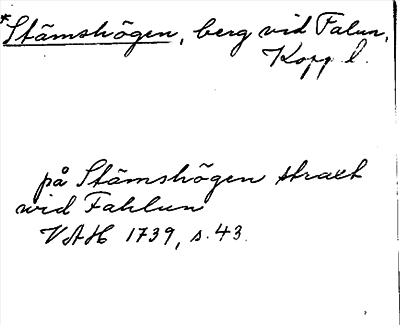 *Stämshögen, berg vid Falun,
Kopp l.
på Stämshögen straxt
wid Fahlun
VAH 1739, s. 43.